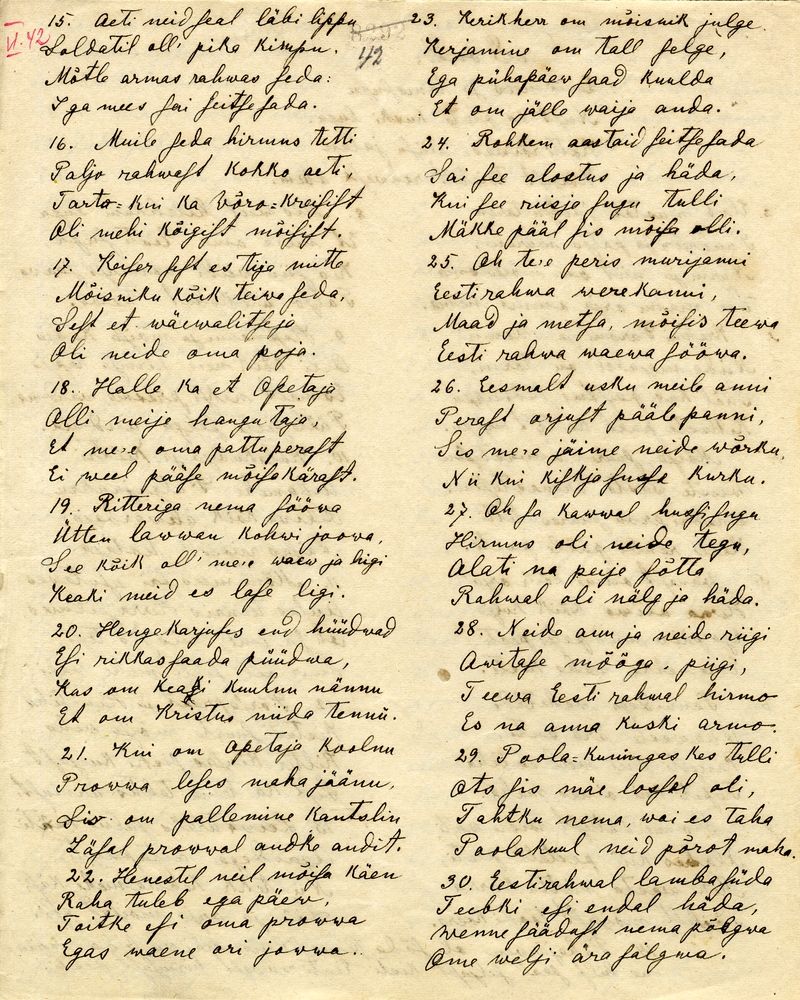 VI. 42
42
15. Aeti neid seal läbi lippu
Soldatil oll' pika kimpu.
Mõtle armas rahwas seda:
Iga mees sai seitse sada.
16. Muile seda hirmus tetti
Paljo rahwast kokko aeti,
Tarto= kui ka Võro=kreisist
Oli mehi kõigist mõisist.
17. Keiser sest es tija mitte
Mõisniku kõik teiwa seda,
Sest et wäewalitseja
Oli neide oma poja.
18. Halle ka et Opetaja
Olli meije hangutaja,
Et meie oma pattu perast
Ei weel pääse mõisa kärast.
19. Ritteriga nema sööwa
Ütten lawwan kohwi joowa,
See kõik oll' meie waew ja higi
Keaki meid es lase ligi.
20. Hengekarjuses end hüüdwad
Esi rikkas saada püüdwa,
Kas om keaki kuulnu nännu
Et om Kristus niida tennü.
21. Kui om Opetaja koolnu
Prowwa leses maha jäänu,
Sis om pallemine kantslin
Läsal prowwal andke andit.
22. Henestil neil mõisa käen
Raha tuleb ega päew,
Toitke esi oma prowwa
Egas waene ori jowwa.
23. Kerikherr om mõisnik julge
Kerjamine om tall selge,
Ega pühapäew saad kuulda
Et om jälle waija anda.
24. Rohkem aastaid seitse sada
Sai see alostus ja häda,
Kui see riisja sugu tulli
Mäkke pääl sis mõisa olli.
25. Oh teie peris murijanni
Eesti rahwa werekanni,
Maad ja metsa, mõisis teewa
Eesti rahwa waewa sööwa.
26. Eesmalt usku meile anni
Perast orjust pääle panni,
Sis meie jäime neide wõrku,
Nii kui kiskja sussa kurku.
27. Oh sa kawwal hussisugu
Hirmus oli neide tegu,
Alati na peije sõtta
Rahwal oli nälg ja häda.
28. Neide auu ja neide riigi
Awitase mõõga, piigi,
Teewa Eesti rahwal hirmo
Es na anna kuski armo.
29. Poola=kuningas kes tulli
Ots sis mäe lossal oli,
Tahtku nema, woi es taha
Poolakuul neid põrot maha.
30. Eestirahwal lambasüda
Teebki esi endal häda,
Wenne säädust nema põlgwa
Ome welji ära salgwa.